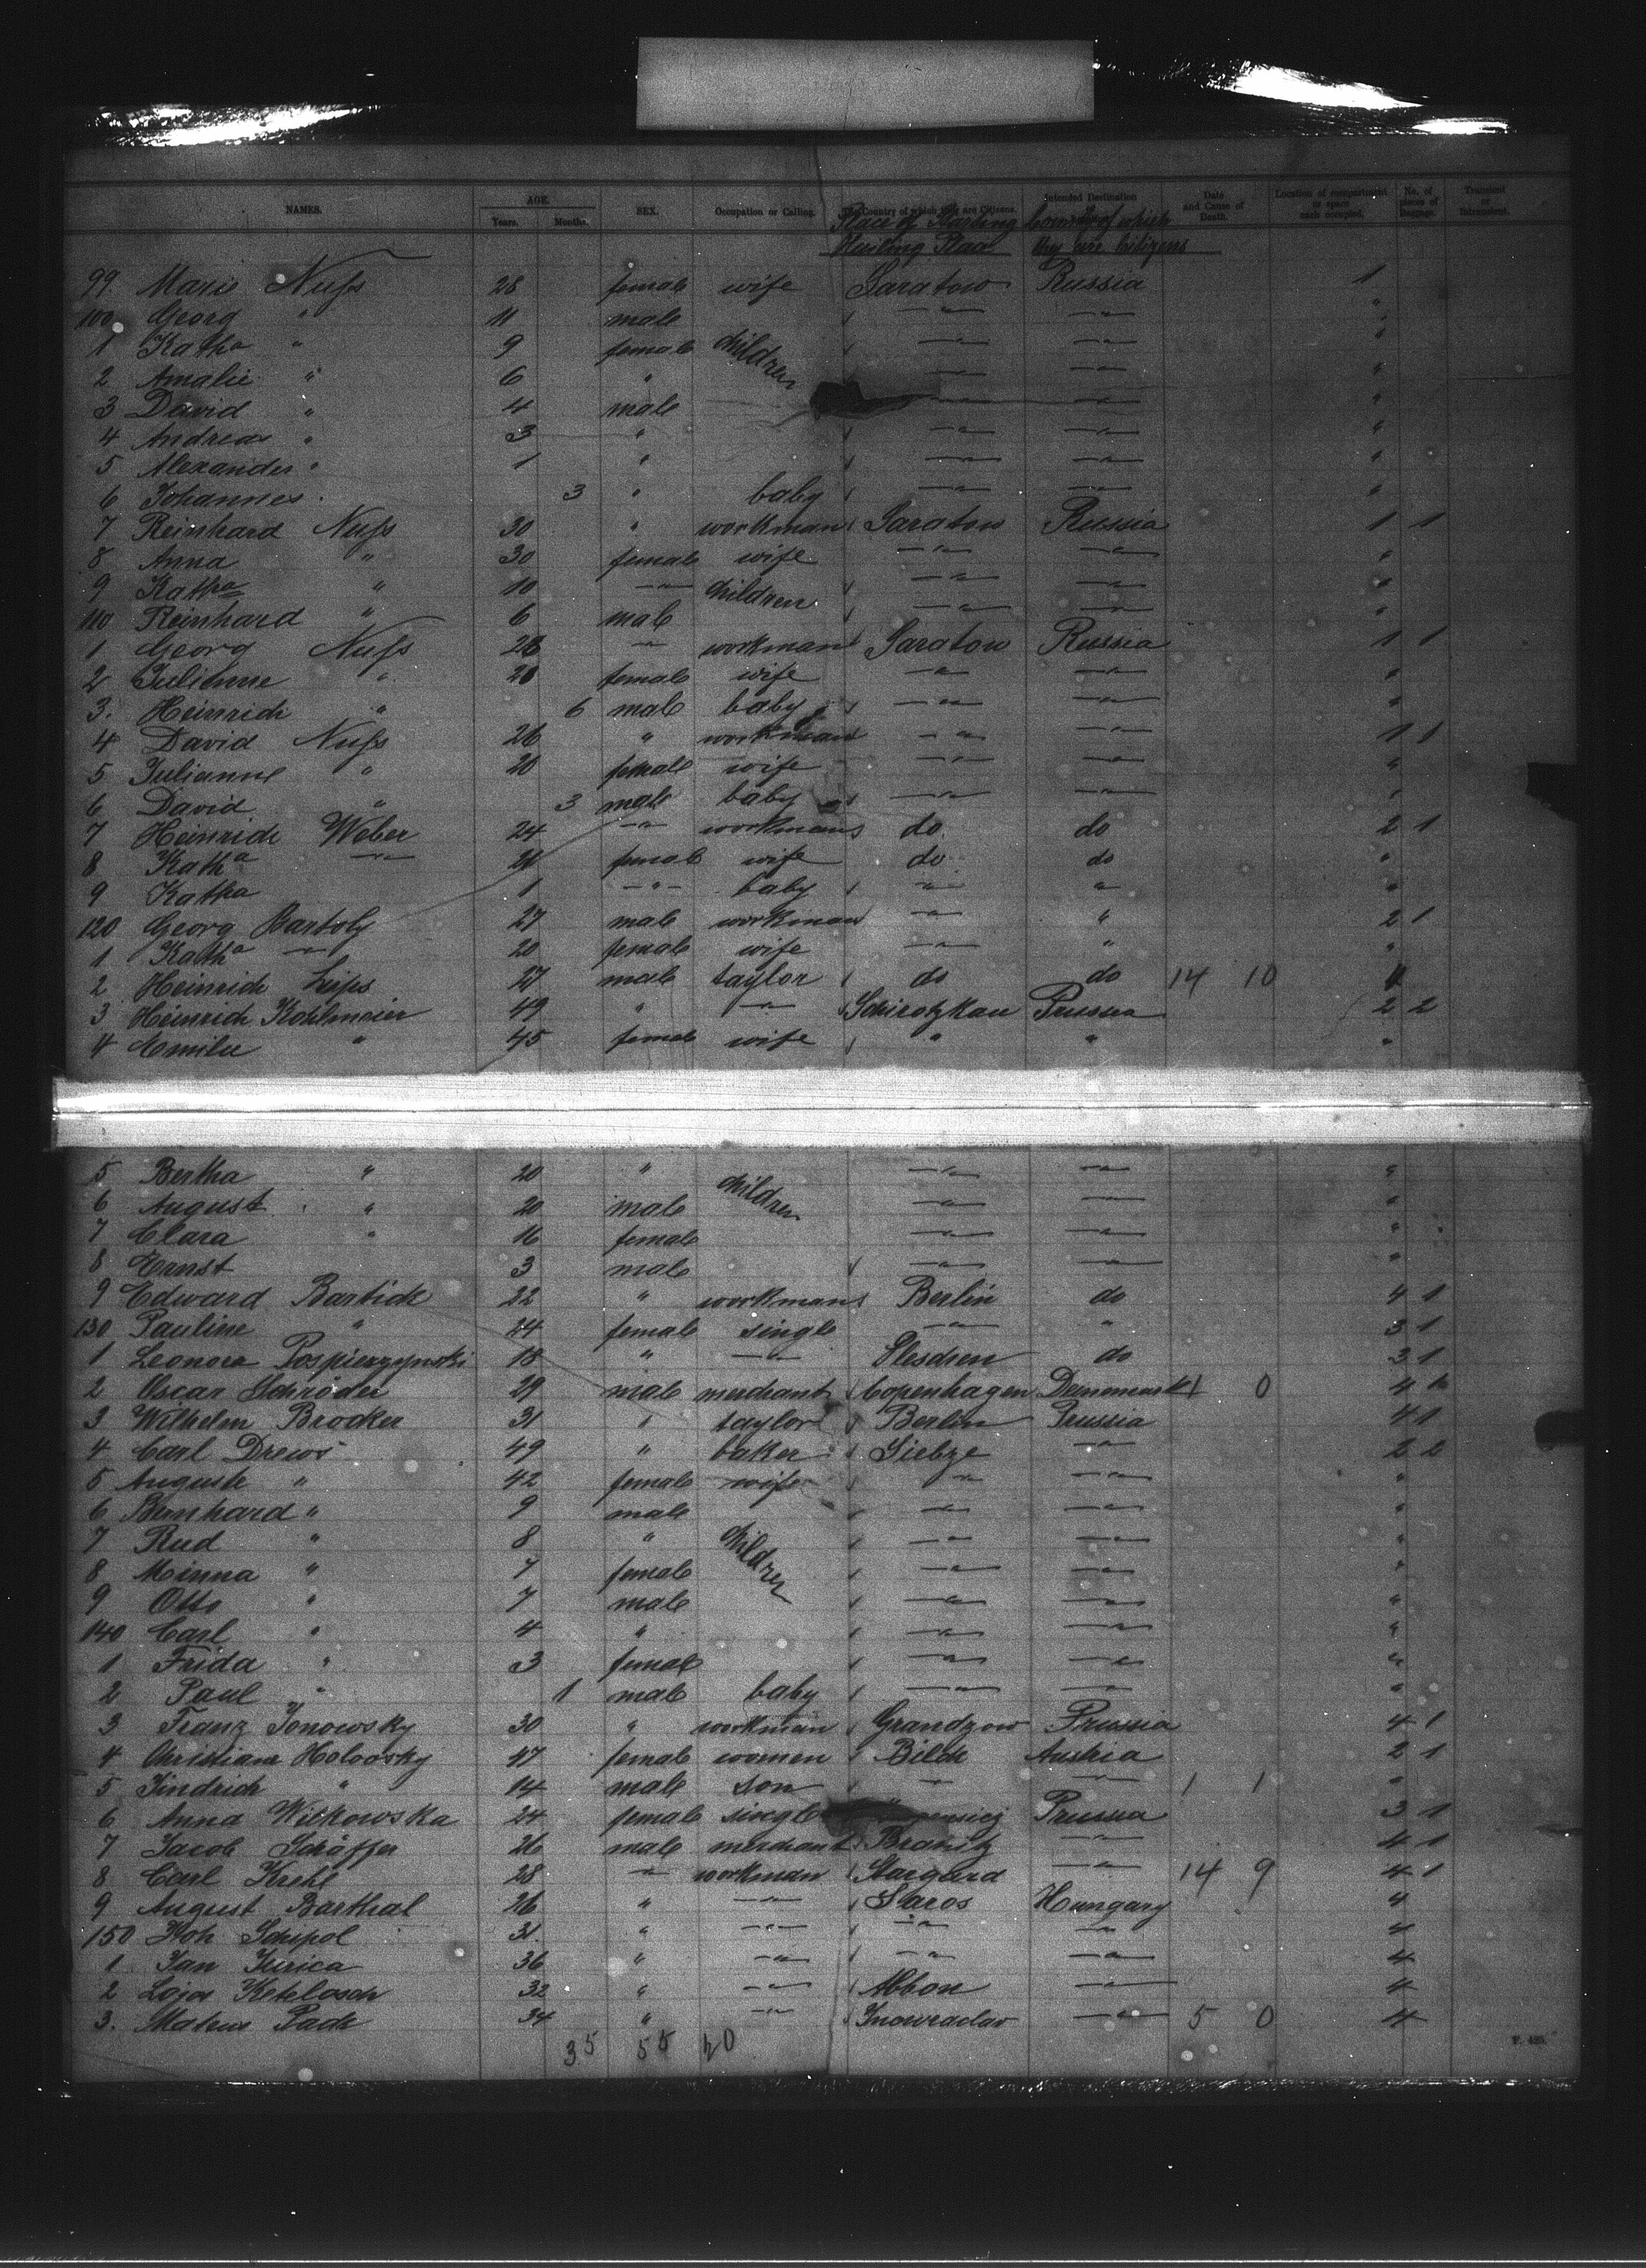 NAMES. AGE. SEX. Occupation or Calling. The Country of which they are Citizens. Intended Destination Date and Cause of Death. Location of compartment or space each occupied. No. of pieces of Baggage. Transient or Intransient.
Years. Months. Place of Starting Country of which
Place they are Citizens
99 Marie Nuſs 28 female wife Saratow Russia 1
100 Georg " 11 male —"— —"— "
1 Katha " 9 female children —"— —"— "
2 Amalie " 6 " —"— —"— "
3 David " 4 male —"— —"— "
4 Andreas " 3 " —"— —"— "
5 Alexander " 1 " —"— —"— "
6 Johannes 3 " baby —"— —"— "
7 Reinhard Nuſs 30 " workman Saratow Russia 1 1
8 Anna " 30 female wife —"— —"— "
9 Katha " 10 —"— children —"— —"— "
110 Reinhard " 6 male —"— —"— "
1 Georg Nuſs 28 —"— workman Saratow Russia 1 1
2 Julianne " 20 female wife —"— —"— "
3. Heinrich " 6 male baby —"— —"— "
4 David Nuſs 26 " workman —"— —"— 1 1
5 Julianne " 20 female wife —"— —"— "
6 David " 3 male baby —"— —"— "
7 Heinrich Weber 24 —"— workman do. do 2 1
8 Katha —"— 21 female wife do. do "
9 Katha 1 —"— baby —"— " "
120 Georg Bartoly 27 male workman —"— " 2 1
1 Katha —"— 20 female wife —"— " "
2 Heinrich Leips 27 male taylor do do 14 10
3 Heinrich Kohlmeier 49 " —"— Schirotzkau Prussia 2 2
4 Emilie " 45 female wife " " "
5 Bertha " 20 " children —"— —"— "
6 August " 20 male —"— —"— "
7 Clara " 16 female —"— —"— "
8 Ernst 3 male —"— —"— "
9 Edward Bartick 22 " workman Berlin do 4 1
130 Pauline " 24 female single —"— " 3 1
1 Leonora Pospieszynski 18 " —"— Pleschen do 3 1
2 Oscar Schröder 29 male merchant Copenhagen Denemark 1 0 4
3 Wilhelm Brocker 31 " taylor Berlin Prussia 4 1
4 Carl Drews 49 " baker Siebze —"— 2 2
5 Auguste " 42 female wife —"— —"— "
6 Bernhard " 9 male —"— —"— "
7 Rud " 8 " children —"— —"— "
8 Minna " 7 female —"— —"— "
9 Otto " 7 male —"— —"— "
140 Carl " 4 " —"— —"— "
1 Frida " 3 female —"— —"— "
2 Paul " 1 male baby —"— —"— "
3 Franz Jonowsky 30 " workman Grandzow Prussia 4 1
4 Christiane Holovsky 47 female women Bilck Austria 2 1
5 Jindrich " 14 male son —"— —"— 1 1 "
6 Anna Witkowska 24 female single Prussia 3 1
7 Jacob Schäffer 26 male merchant Branitz —"— 4 1
8 Carl Krehl 28 —"— workman Stargard —"— 14 9 4 1
9 August Barthal 26 " —"— Saros Hungary 4
150 Joh Schipol 31. " —"— —"— —"— 4
1 Jan Jurica 36 " —"— —"— —"— 4
2 Loja Ketelosch 32 " —"— Abbon —"— 4
3. Mateus Pack 34 " —"— Inowraclav —"— 5 0 4
35 55 20